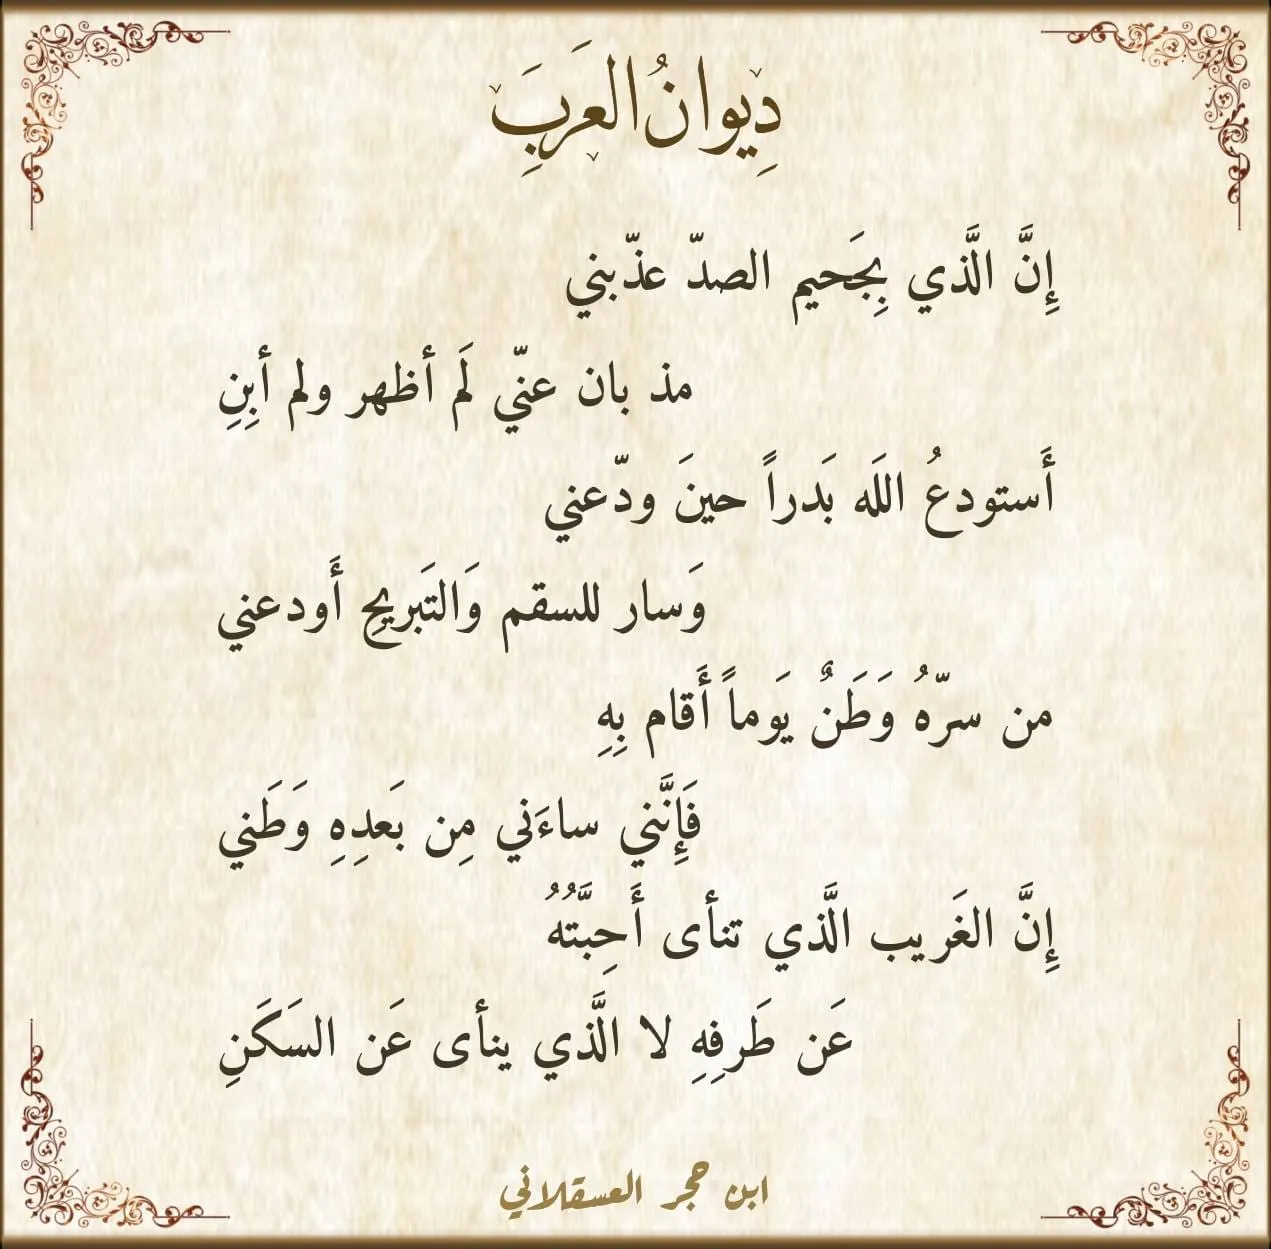 دِيوانُ العَربِ
إِنَّ الَّذي بِجَحيم الصدّ عذّبني
مذ بان عنّي لَم أظهر ولم أبِنِ
أَستودعُ اللَه بَدراً حينَ ودّعني
وَسار للسقم وَالتَبريحِ أَودعني
من سرّهُ وَطَنٌ يَوماً أَقام بِهِ
فَإِنَّني ساءَني مِن بَعدِهِ وَطَني
إِنَّ الغَريب الَّذي تنأى أَحِبَّتُهُ
عَن طَرفِهِ لا الَّذي ينأى عَن السَكَنِ
ابن حجر العسقلاني